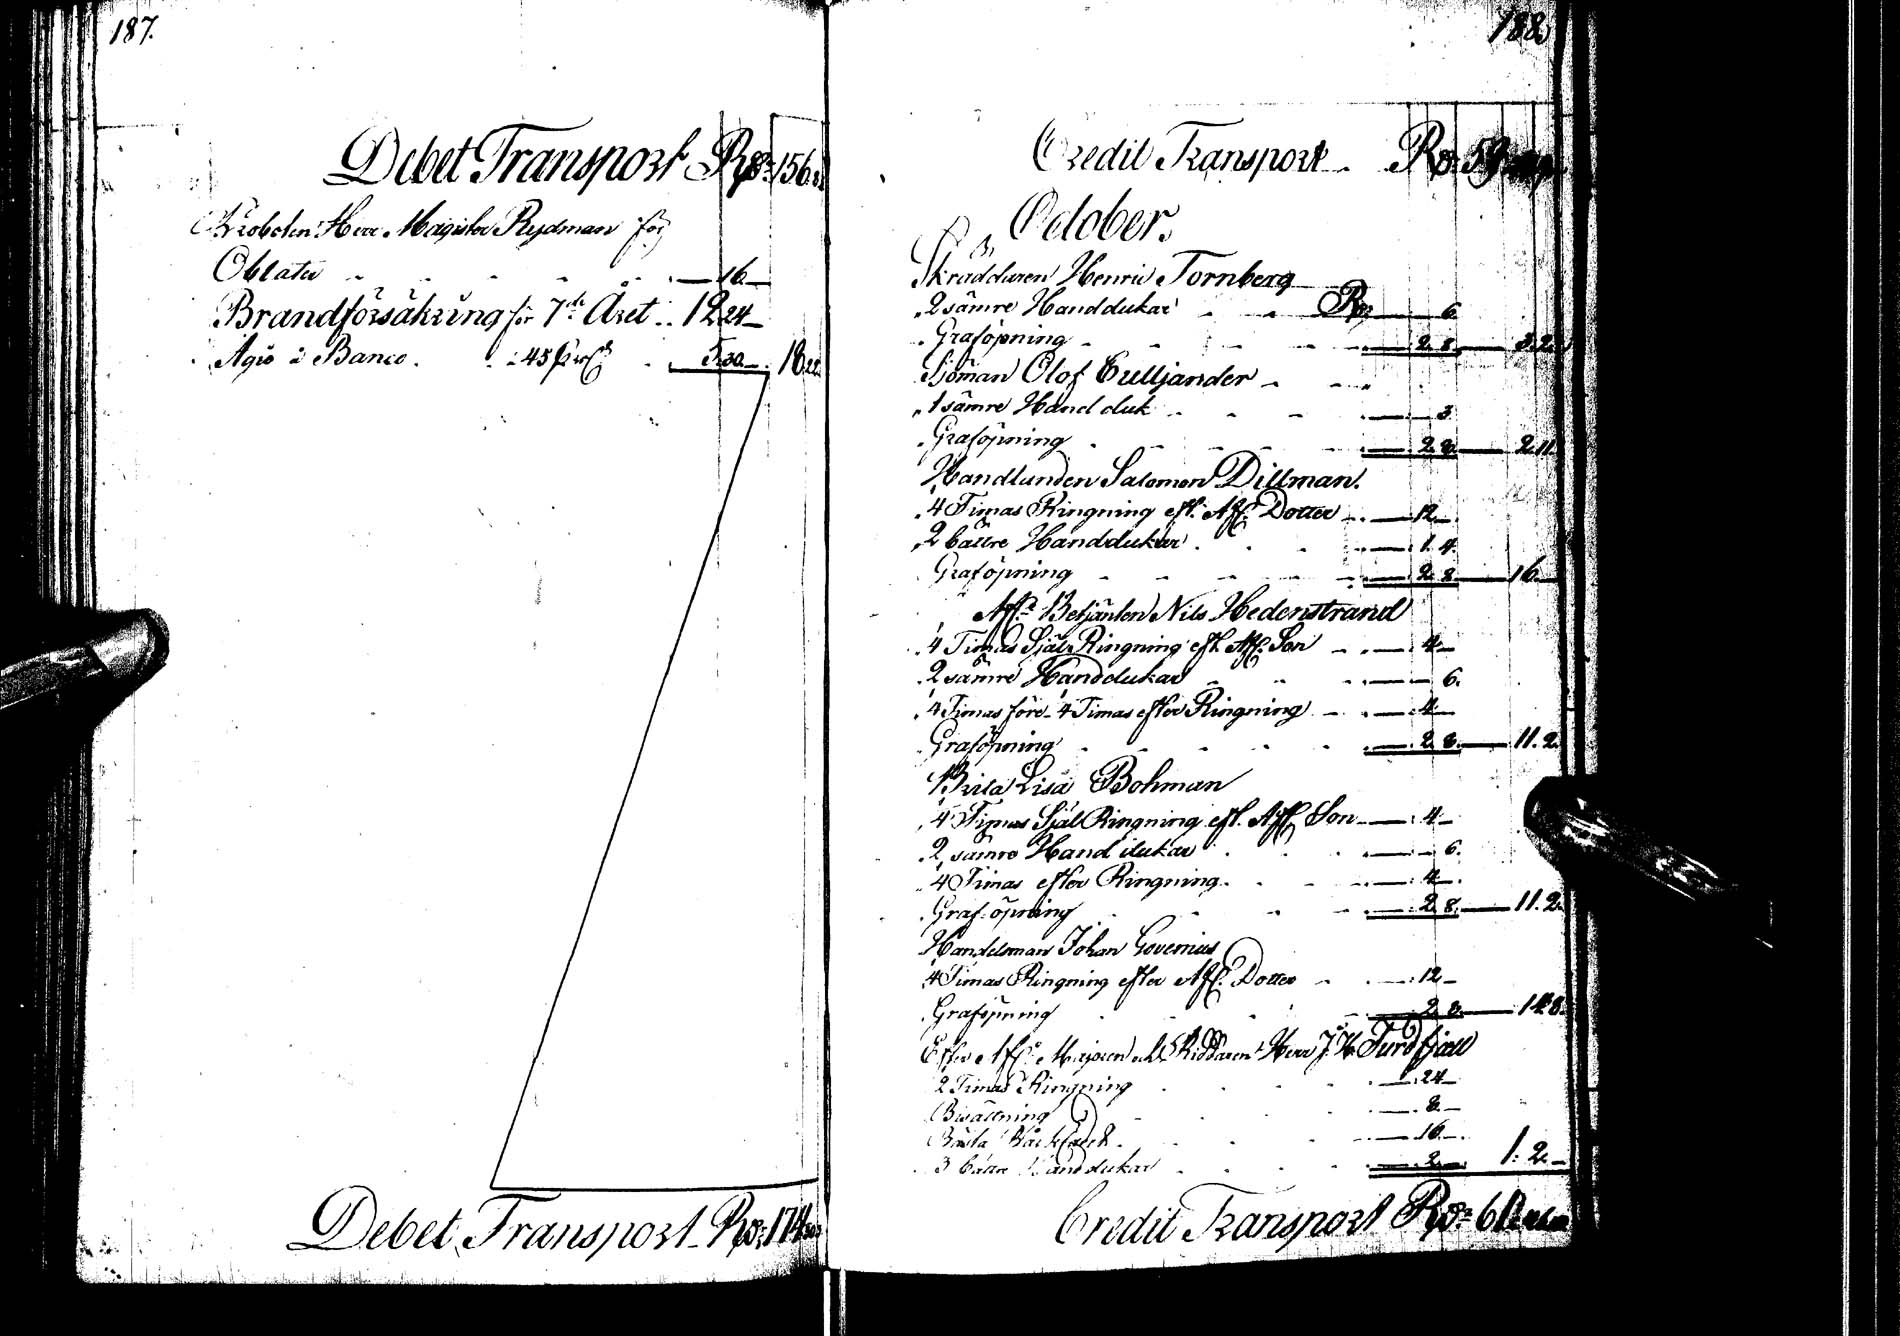 187.
Debet Transport Rd: 156.
Probsten Herr Magister Rydman för
Oblater 16.
Brandförsäkring för 7de Året 12 24
Agio å Banco 45 5 30 18. 22.
Debet Transport Rd: 174
188.
Credit Transport Rd: 59
October.
Skräddaren Henric Tornberg
2 sämre Handdukar Rd 6
Graföpning 2. 8. 3. 2.
Sjöman Olof Culljander
1 sämre Handduk 3
Graföpning 2. 8. 2. 11.
Handlanden Salomon Dillman.
4 Timas Ringning eft. Afl. Dotter 12
2 bättre Handdukar 1. 4.
Graföpning 2. 8. 16.
Afl. Betjänten Nils Hedenstrand
4 Timas Själ Ringning eft. Afl. Son 4
2 sämre Handdukar 6.
4 Timas före 4 Timas efter Ringning 4
Graföpning 2. 8. 11. 2.
Brita Lisa Bohman
4 Timas Själ Ringning eft. Afl. Son 4
2 sämre Handdukar 6.
4 Timas efter Ringning 4
Graf öpning 2. 8. 11. 2.
Handelsman Johan Governius
4 Timas Ringning efter Afl. Dotter 12
Graföpning 2. 8. 14. 8.
Efter Afl. Majoren och Riddaren Herr J. H. Furdfjäll
2 Timas Ringning 24
Bisättning 8
Bästa 16
3 bättre Handdukar 2 1: 2.
Credit Transport Rd: 61